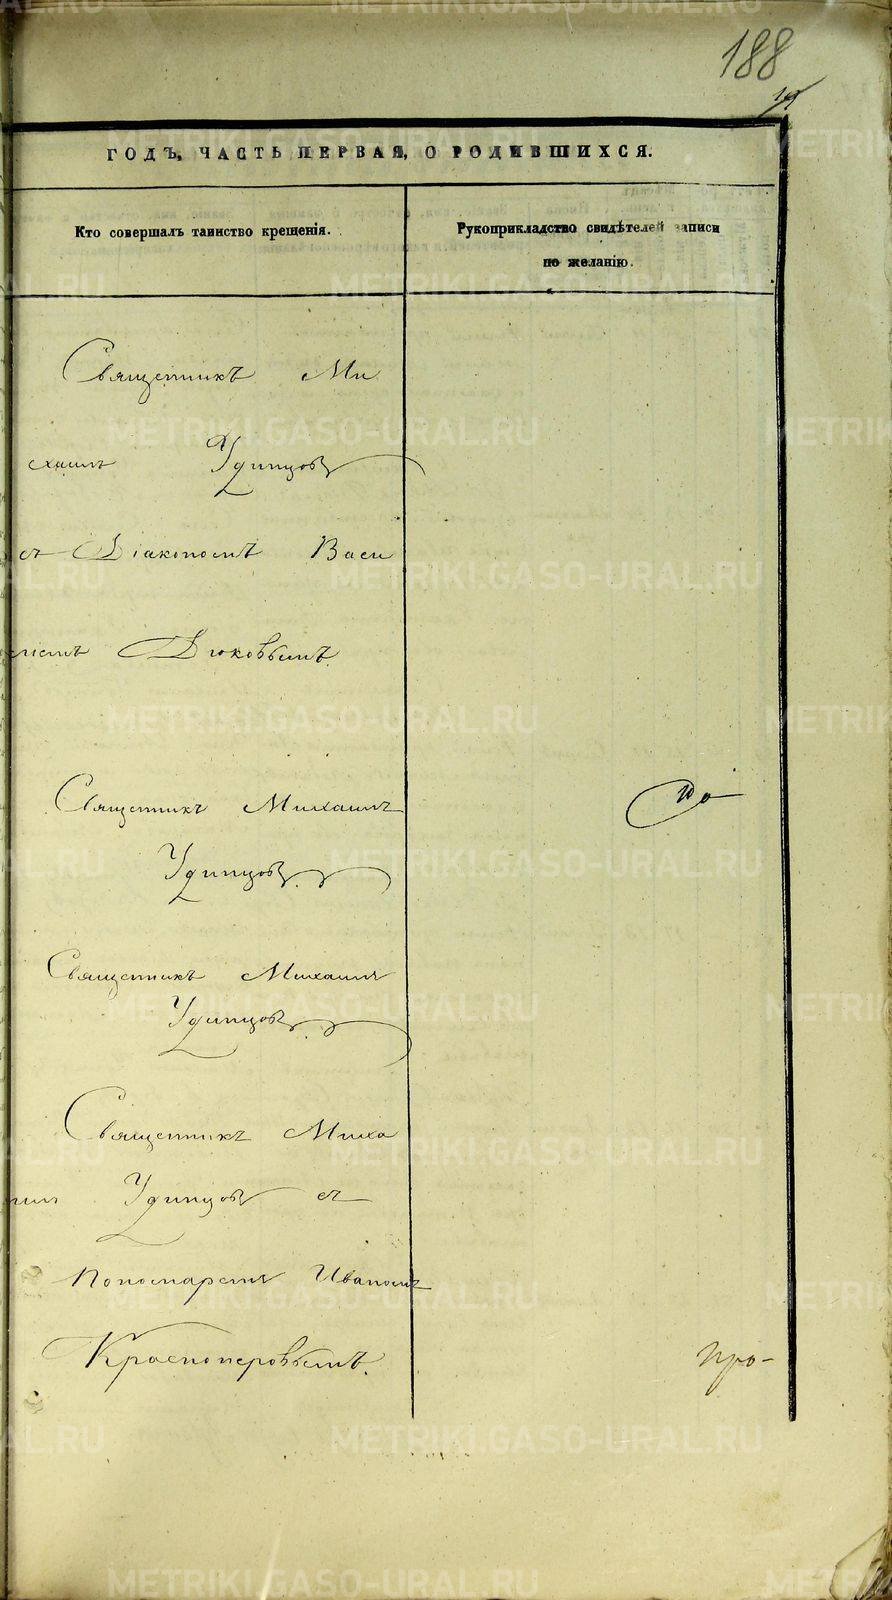 188
ГОДЪ, ЧАСТЬ ПЕРВАЯ, О РОДИВШИХСЯ.
Кто совершалъ таинство крещенія.
Рукоприкладство свидѣтелей записи
по желанію.
Священникъ Ми
хаилъ Удинцовъ
съ Діакономъ Васи
ліемъ Дюковымъ.
Священникъ Михаилъ
Удинцовъ.
Священникъ Михаилъ
Удинцовъ.
Священникъ Миха
илъ Удинцовъ съ
Пономаремъ Иваномъ
Красноперовымъ.
про-
METRIKI.GASO-URAL.RU